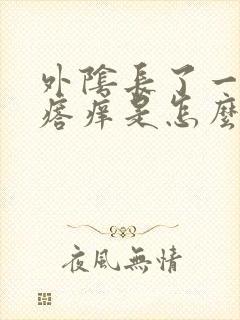 外陰長了一
痞痒是怎麼
夜風無情